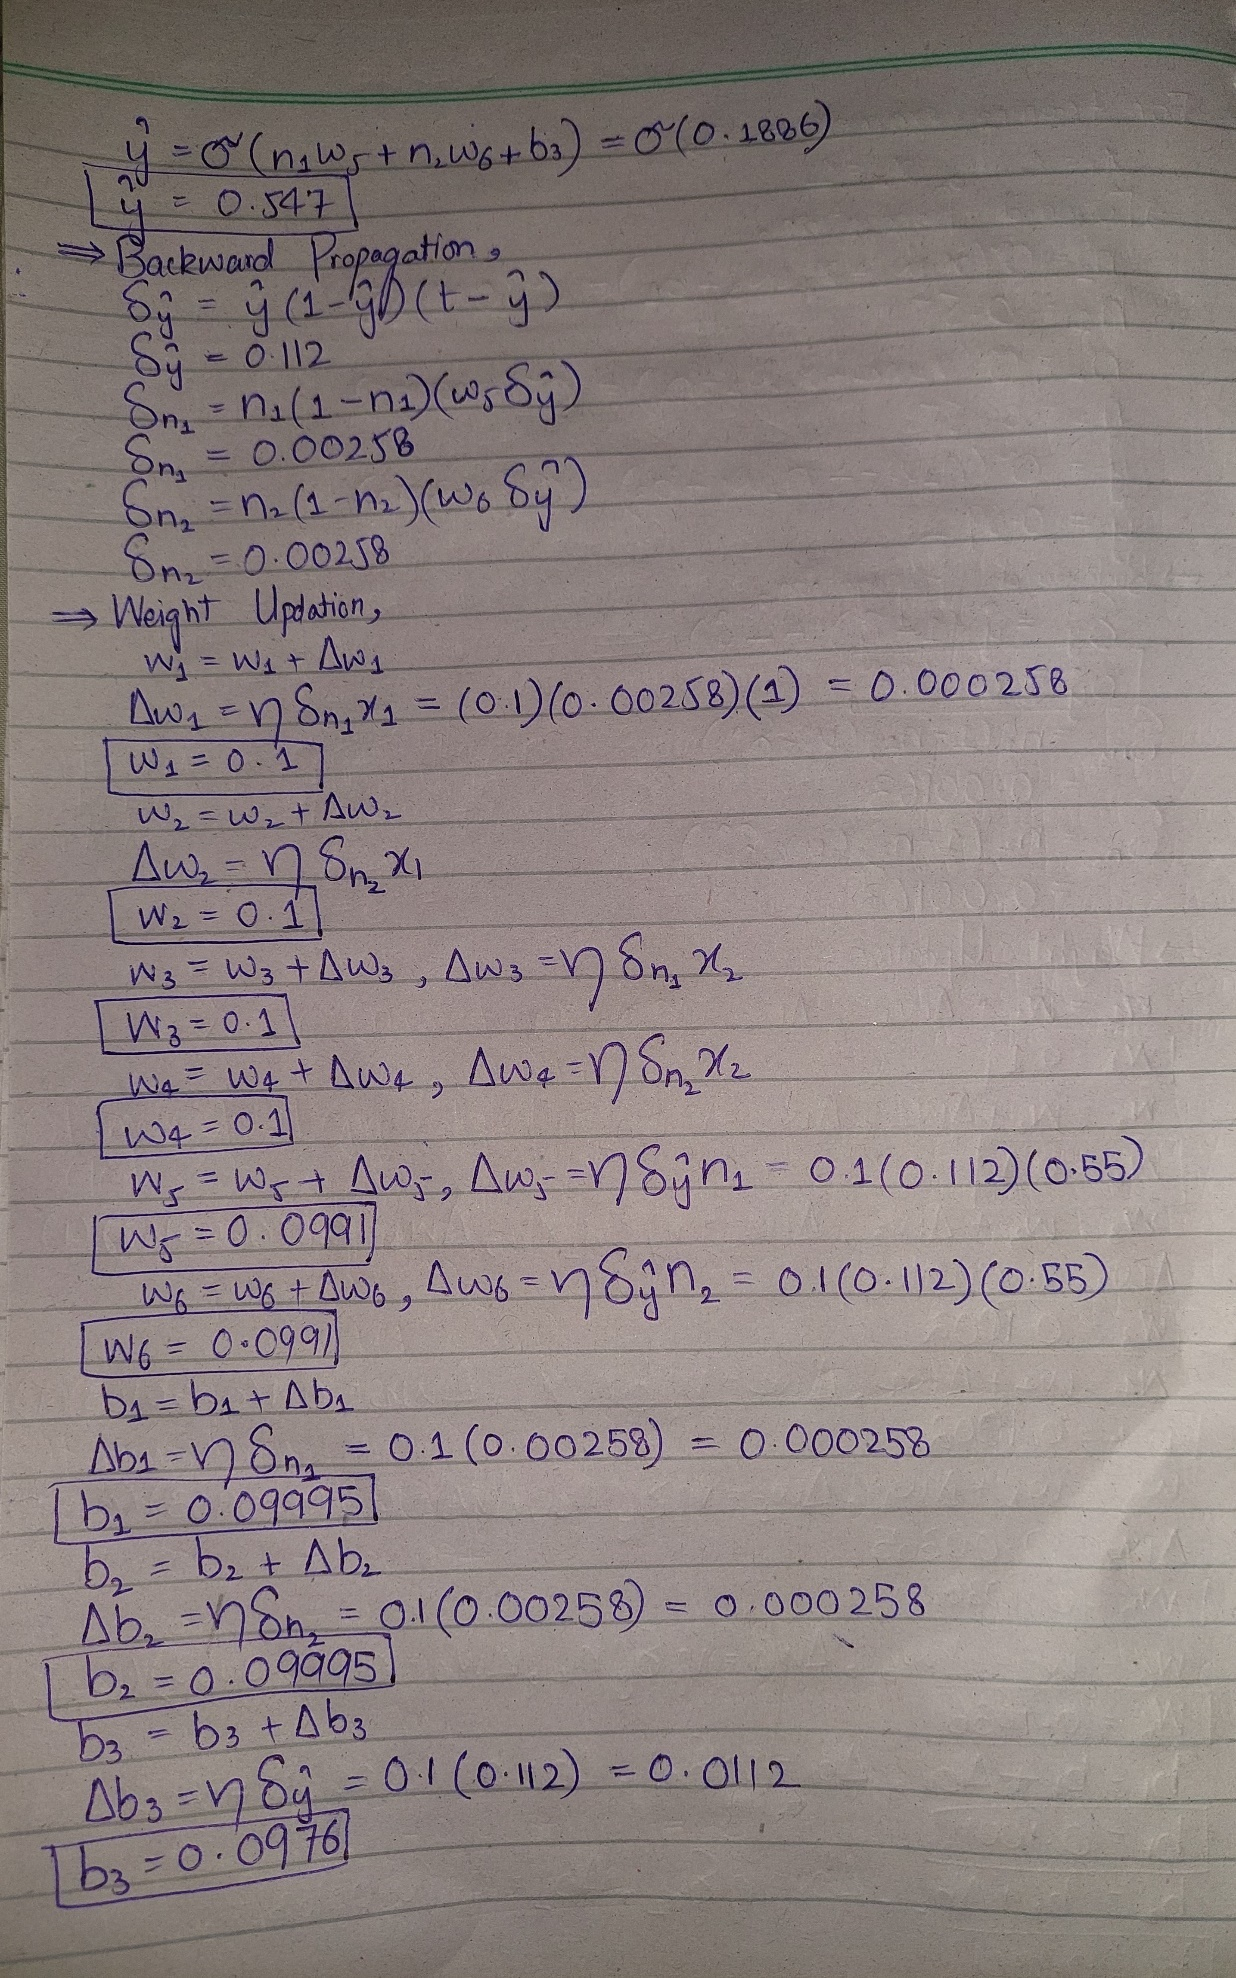 ŷ = σ(n₁w₅ + n₂w₆ + b₃) = σ(0.1886)
ŷ = 0.547
⇒ Backward Propagation,
δŷ = ŷ(1-ŷ)(t-ŷ)
δŷ = 0.112
δn₁ = n₁(1-n₁)(w₅δŷ)
δn₁ = 0.00258
δn₂ = n₂(1-n₂)(w₆δŷ)
δn₂ = 0.00258
⇒ Weight Updation,
w₁ = w₁ + Δw₁
Δw₁ = η δn₁x₁ = (0.1)(0.00258)(1) = 0.000258
w₁ = 0.1
w₂ = w₂ + Δw₂
Δw₂ = η δn₂x₁
w₂ = 0.1
w₃ = w₃ + Δw₃, Δw₃ = η δn₁x₂
w₃ = 0.1
w₄ = w₄ + Δw₄, Δw₄ = η δn₂x₂
w₄ = 0.1
w₅ = w₅ + Δw₅, Δw₅ = η δŷn₁ = 0.1(0.112)(0.55)
w₅ = 0.0991
w₆ = w₆ + Δw₆, Δw₆ = η δŷn₂ = 0.1(0.112)(0.55)
w₆ = 0.0991
b₁ = b₁ + Δb₁
Δb₁ = η δn₁ = 0.1(0.00258) = 0.000258
b₁ = 0.09995
b₂ = b₂ + Δb₂
Δb₂ = η δn₂ = 0.1(0.00258) = 0.000258
b₂ = 0.09995
b₃ = b₃ + Δb₃
Δb₃ = η δŷ = 0.1(0.112) = 0.0112
b₃ = 0.0976